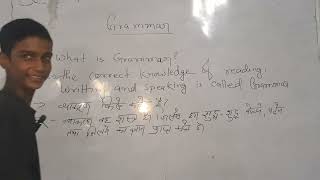 Grammar
What is Grammar?
The correct knowledge of reading
writing and speaking is called Grammar
→ व्याकरण किसे कहते है?
→ व्याकरण वह शास्त्र है शुद्ध-शुद्ध
तथा लिखने का ज्ञान प्राप्त होते है।